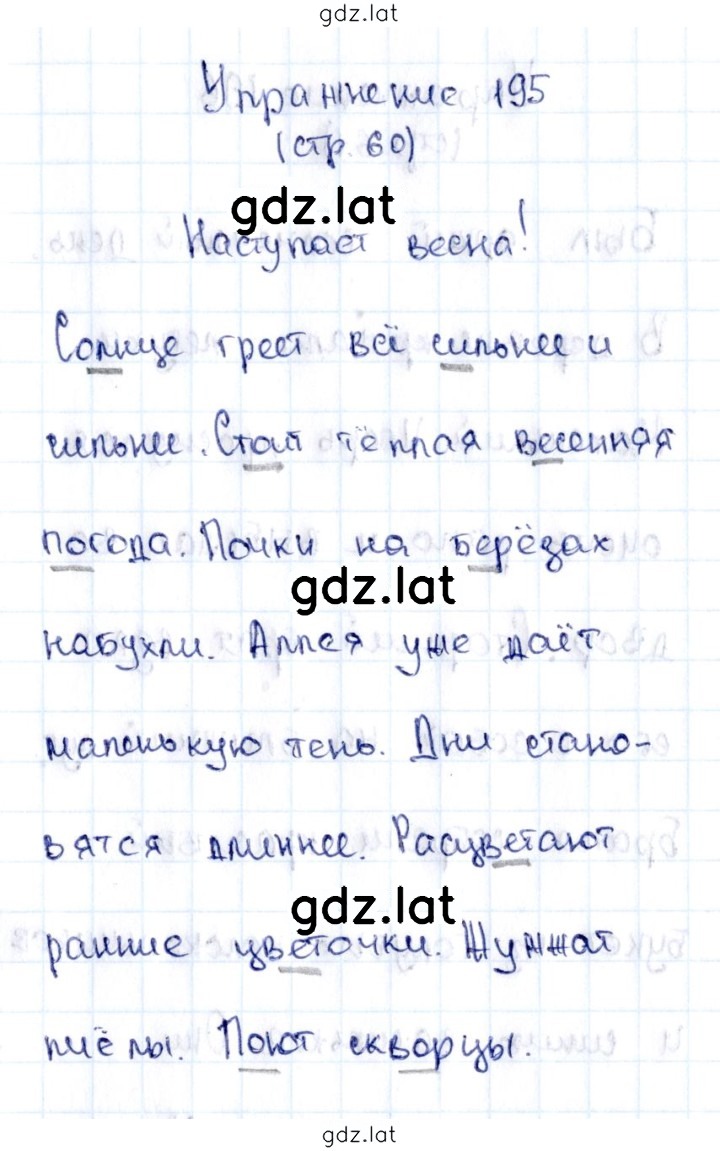 gdz.lat
Упражнение 195
(стр. 60)
gdz.lat
Наступает весна!
Солнце греет всё сильнее и
сильнее. Стоит тёплая весенняя
погода. Почки на берёзах
gdz.lat
набухли. Аллея уже даёт
маленькую тень. Дни стано-
вятся длиннее. Расцветают
gdz.lat
ранние цветочки. Жужжат
пчёлы. Поют скворцы.
gdz.lat